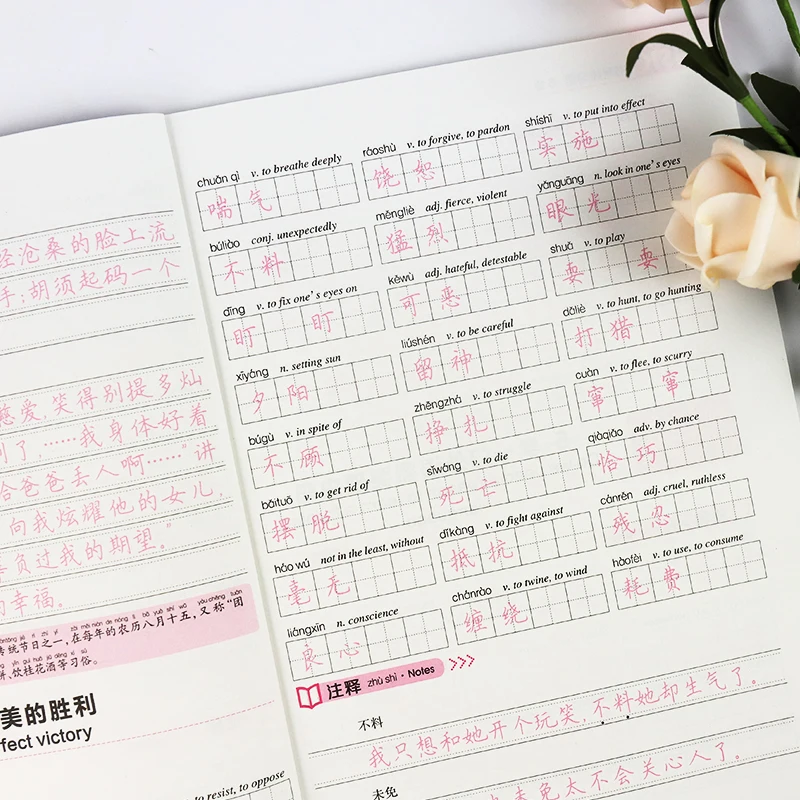 沧桑的脸上流
手;胡须起码一个
慈爱,笑得别提多灿
到了,……我身体好着
给爸爸丢人啊……”讲
向我炫耀他的女儿,
负过我的期望。”
幸福。
统节日之一,在每年的农历八月十五,又称“团
饮桂花酒等习俗。
美的胜利
fect victory
to resist, to oppose
chuǎn qì v. to breathe deeply
喘气
búliào conj. unexpectedly
不料
dīng v. to fix one's eyes on
盯 盯
xīyáng n. setting sun
夕阳
búgù v. in spite of
不顾
bǎituō v. to get rid of
摆脱
háo wú not in the least, without
毫无
liángxīn n. conscience
良心
ráoshù v. to forgive, to pardon
饶恕
měngliè adj. fierce, violent
猛烈
kěwù adj. hateful, detestable
可恶
liúshén v. to be careful
留神
zhēngzhá v. to struggle
挣扎
sǐwáng v. to die
死亡
dǐkàng v. to fight against
抵抗
chánrào v. to twine, to wind
缠绕
shíshī v. to put into effect
实施
yǎnguāng n. look in one's eyes
眼光
shuǎ v. to play
耍 耍
dǎliè v. to hunt, to go hunting
打猎
cuàn v. to flee, to scurry
窜 窜
qiàqiǎo adv. by chance
恰巧
cánrěn adj. cruel, ruthless
残忍
hàofèi v. to use, to consume
耗费
注释 zhù shì · Notes
不料
我只想和她开个玩笑,不料她却生气了。
未免
未免太不会关心人了。